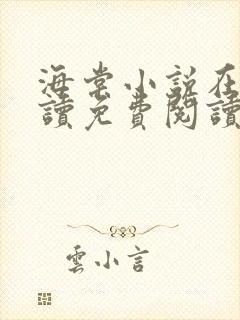 海棠小説在
讀免費閱讀
雲小言